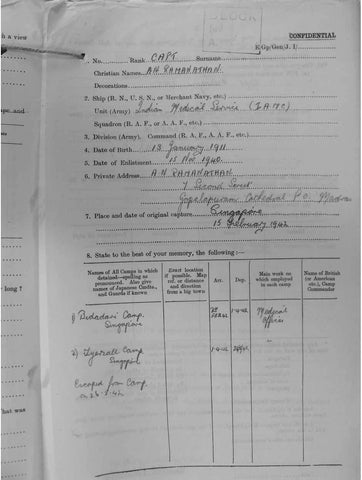 h a view
BLOCK
CONFIDENTIAL
E Gp/Gen(J. I)
1. No. Rank CAPT Surname
Christian Names A H RAMANATHAN
Decorations
2. Ship (R. N., U. S. N., or Merchant Navy, etc.)
Unit (Army) Indian Medical Service (I A M C)
Squadron (R. A. F., or A. A. F., etc.)
3. Division (Army). Command (R. A. F., A. A. F., etc.)
4. Date of Birth 13 January 1911
5. Date of Enlistment 15 Nov 1940
6. Private Address A H RAMANATHAN
7 Second Street
Gopalapuram Cathedral P.O. Madras
7. Place and date of original capture Singapore
15 February 1942
8. State to the best of your memory, the following :—
Names of All Camps in which detained—spelling as pronounced. Also give names of Japanese Cmdts., and Guards if known
Exact location if possible. Map ref. or distance and direction from a big town
Arr.
Dep.
Main work on which employed in each camp
Name of British (or American etc.), Camp Commander
1) Bidadari Camp
Singapore
1-4-42
Medical
Officer
2) Tyersall Camp
Singapore
1-4-42
Escaped from Camp
on
long ?
What was